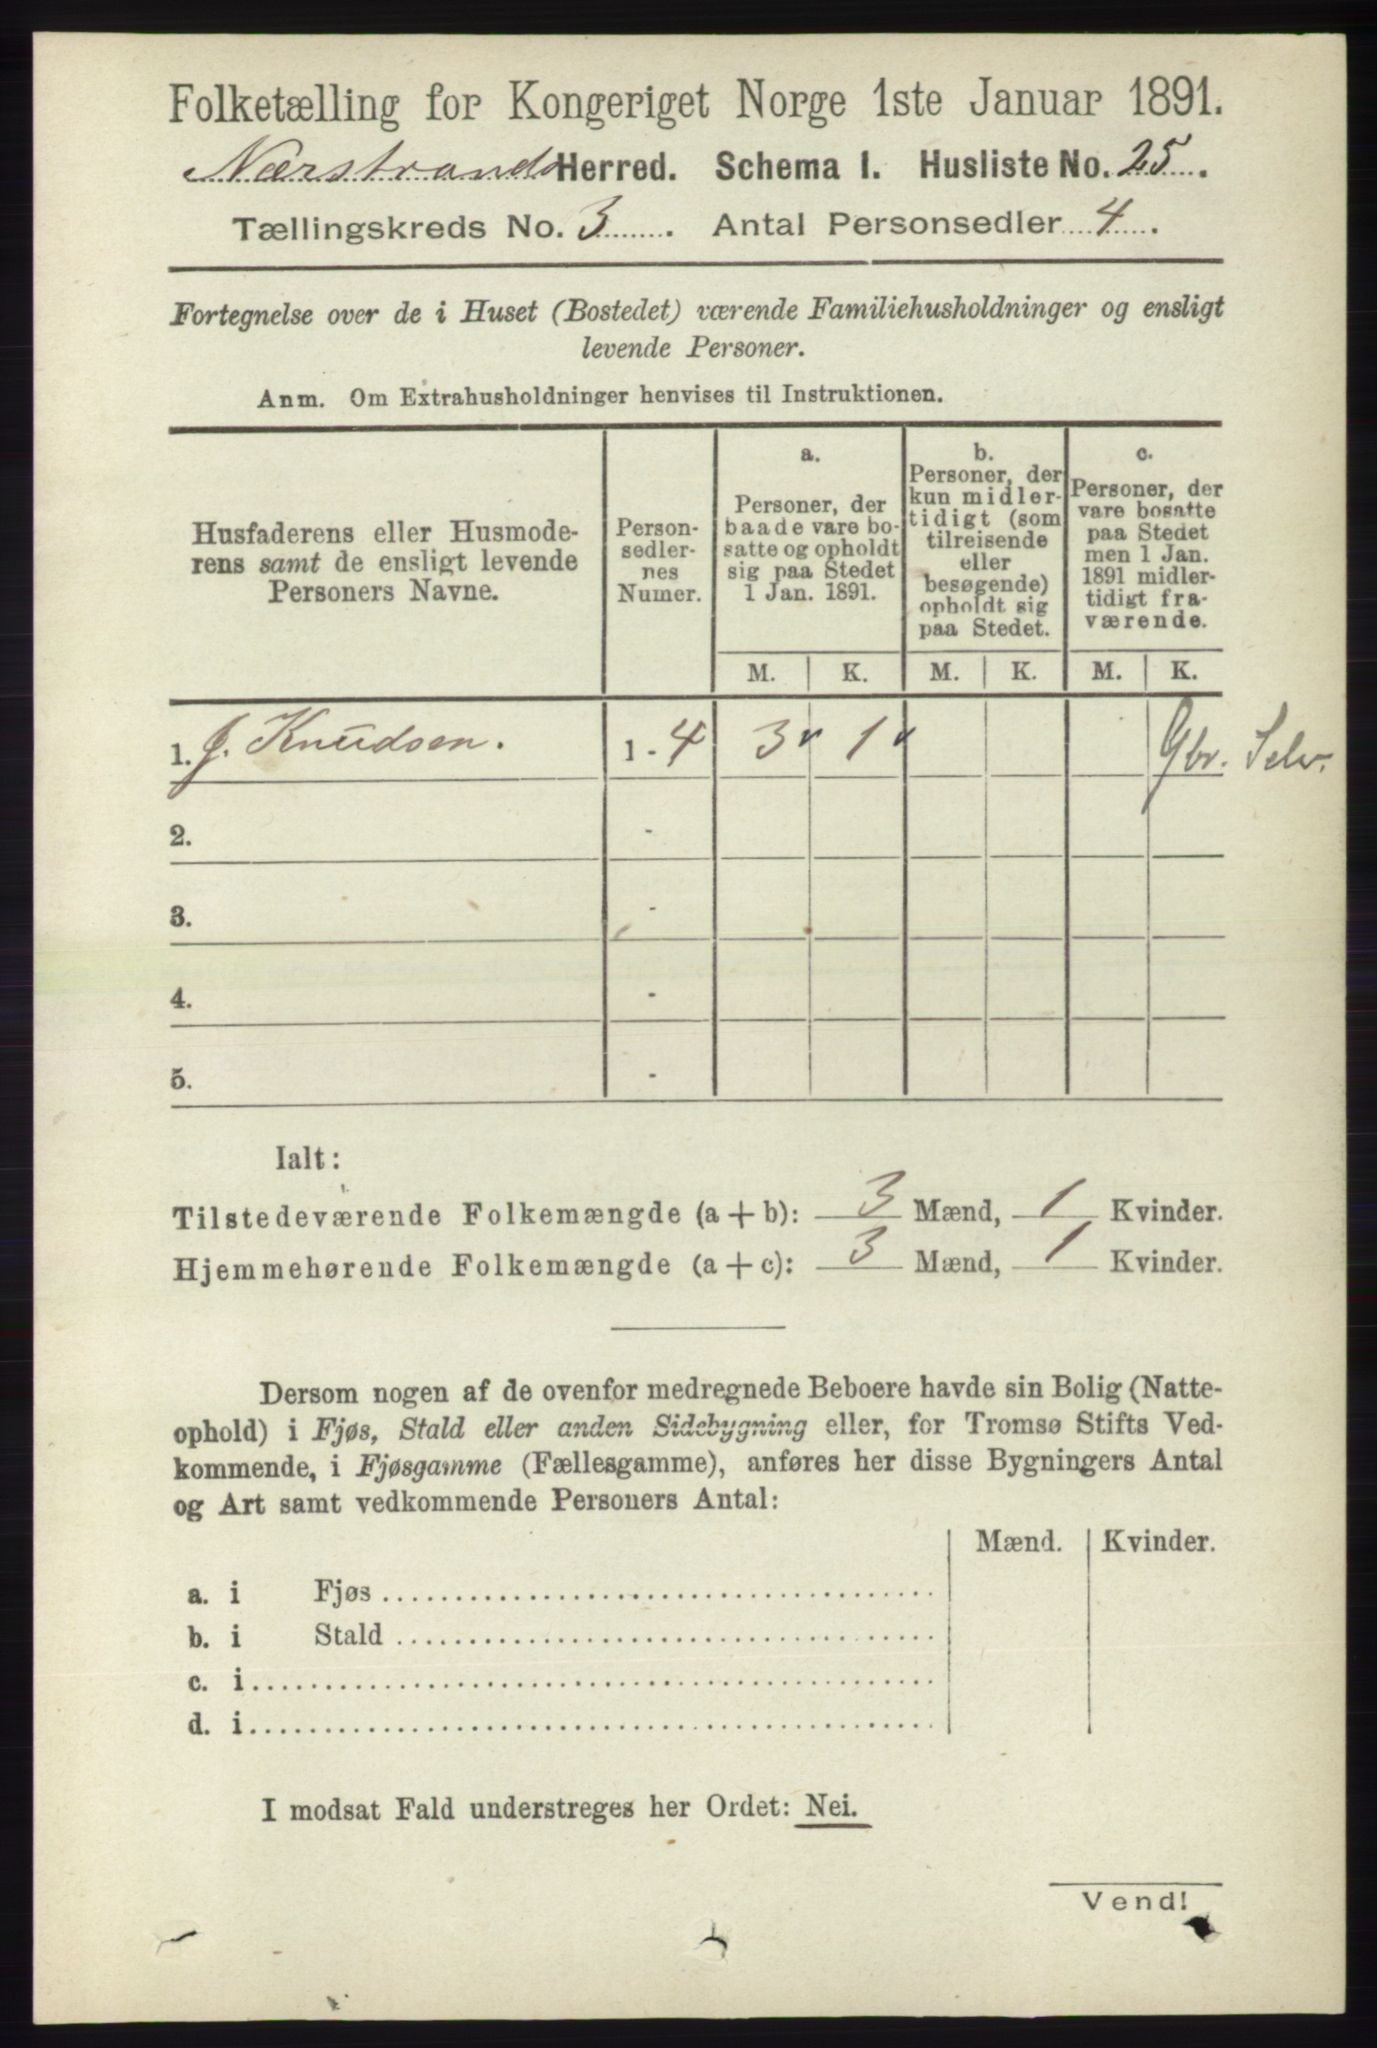 Folketælling for Kongeriget Norge 1ste Januar 1891.
Nærstrands Herred. Schema I. Husliste No. 25.
Tællingskreds No. 3. Antal Personsedler 4.
Fortegnelse over de i Huset (Bostedet) værende Familiehusholdninger og ensligt
levende Personer.
Anm. Om Extrahusholdninger henvises til Instruktionen.
Husfaderens eller Husmode-
rens samt de ensligt levende
Personers Navne.
Person-
sedler-
nes
Numer.
a.
Personer, der
baade vare bo-
satte og opholdt
sig paa Stedet
1 Jan. 1891.
b.
Personer, der
kun midler-
tidigt (som
tilreisende
eller
besøgende)
opholdt sig
paa Stedet.
c.
Personer, der
vare bosatte
paa Stedet
men 1 Jan.
1891 midler-
tidigt fra-
værende.
M. K. M. K. M. K.
1. J. Knudsen. 1 - 4 3 1 Gbr. Selv.
2. -
3. -
4. -
5. -
Ialt:
Tilstedeværende Folkemængde (a + b): 3 Mænd, 1 Kvinder.
Hjemmehørende Folkemængde (a + c): 3 Mænd, 1 Kvinder.
Dersom nogen af de ovenfor medregnede Beboere havde sin Bolig (Natte-
ophold) i Fjøs, Stald eller anden Sidebygning eller, for Tromsø Stifts Ved-
kommende, i Fjøsgamme (Fællesgamme), anføres her disse Bygningers Antal
og Art samt vedkommende Personers Antal:
Mænd. Kvinder.
a. i Fjøs
b. i Stald
c. i
d. i
I modsat Fald understreges her Ordet: Nei.
Vend!